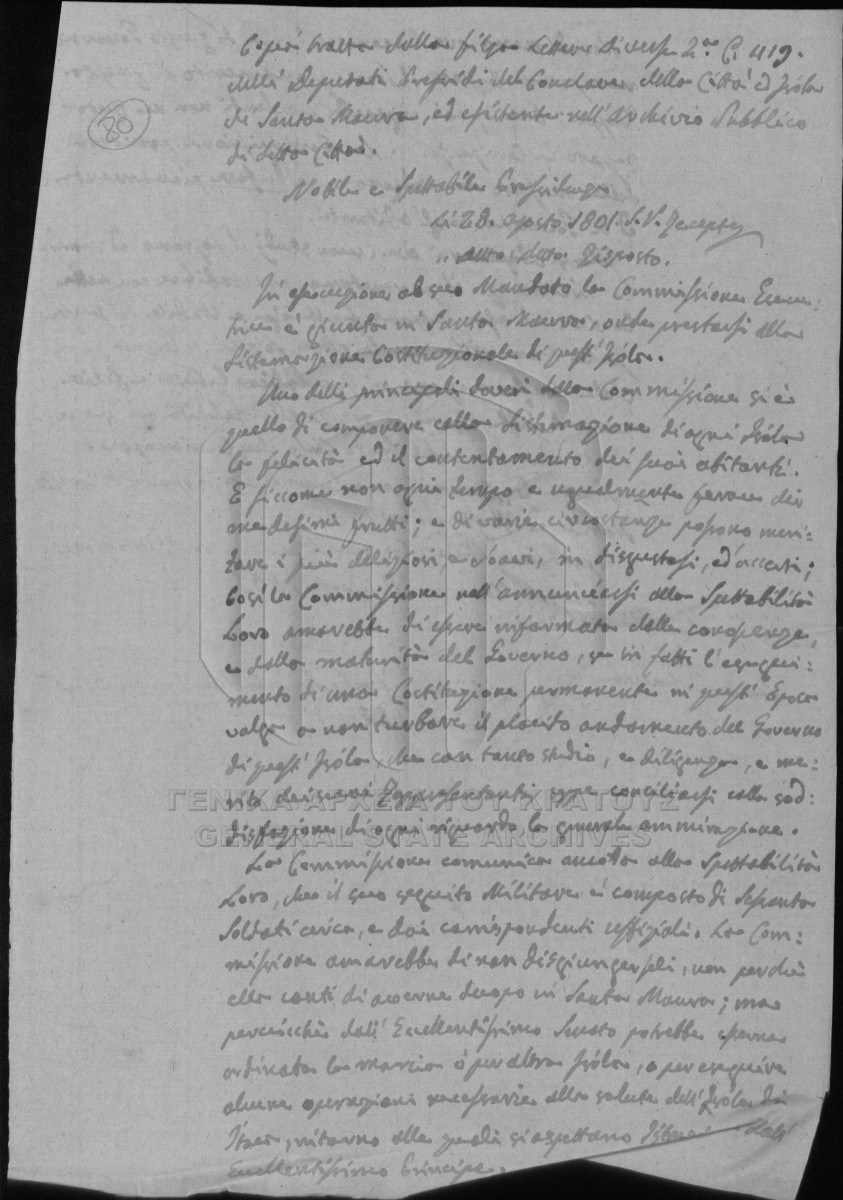 Copia tratta dalla filza Lettere diverse 2da C: 419.
delli Deputati Presidi del Conclave della Città ed Isola
di Santa Maura, ed esistente nell'Archivio Pubblico
di detta Città.
80
Nobile e Spettabile Presidenza
Li 28. Agosto 1801. S.V. Recepta
detto Risposto.
In esecuzione al suo Mandato la Commissione Esecu:
tiva è giunta in Santa Maura, onde prestarsi alla
Sistemazione Costituzionale di quest'Isola.
Uno delli principali doveri della Commissione si è
quello di componere colla sistemazione di ogni Isola
la felicità ed il contentamento dei suoi abitanti.
E siccome non ogni tempo è egualmente ferace dei
medesimi frutti; e di varie circostanze possono meri:
tare i più deliziosi, e soavi, in disgustosi, ed acerbi;
così la Commissione nell'annunciarsi alla Spettabilità
Loro amarebbe di essere informata della
e dalla maturità del Governo, se in fatti l'eseguei:
mento di una Costituzione permanente in quest'Epoca
valga a non turbare il placito andamento del Governo
di quest'Isola, che con tanto studio, e diligenza, e me:
rito dei suoi Rappresentanti seppe conciliarsi colla sod:
disfazione di ogni riguardo la general ammirazione.
La Commissione comunica anco alla Spettabilità
Loro, che il suo seguito Militare è composto di Sessanta
Soldati circa, e doi corrispondenti uffiziali. La Com:
missione amarebbe di non disgiungerseli, non perchè
ella conti di averne duopo in Santa Maura; ma
perciocchè dall'Eccellentissimo Senato potrebbe esserne
ordinata la marcia ò per altra Isola, o per eseguire
alcune operazioni necessarie alla salute dell'Isola di
Itaca, intorno alle quali si aspettano dall'
Eccellentissimo Principe.
ΓΕΝΙΚΑ ΑΡΧΕΙΑ ΤΟΥ ΚΡΑΤΟΥΣ
GENERAL STATE ARCHIVES